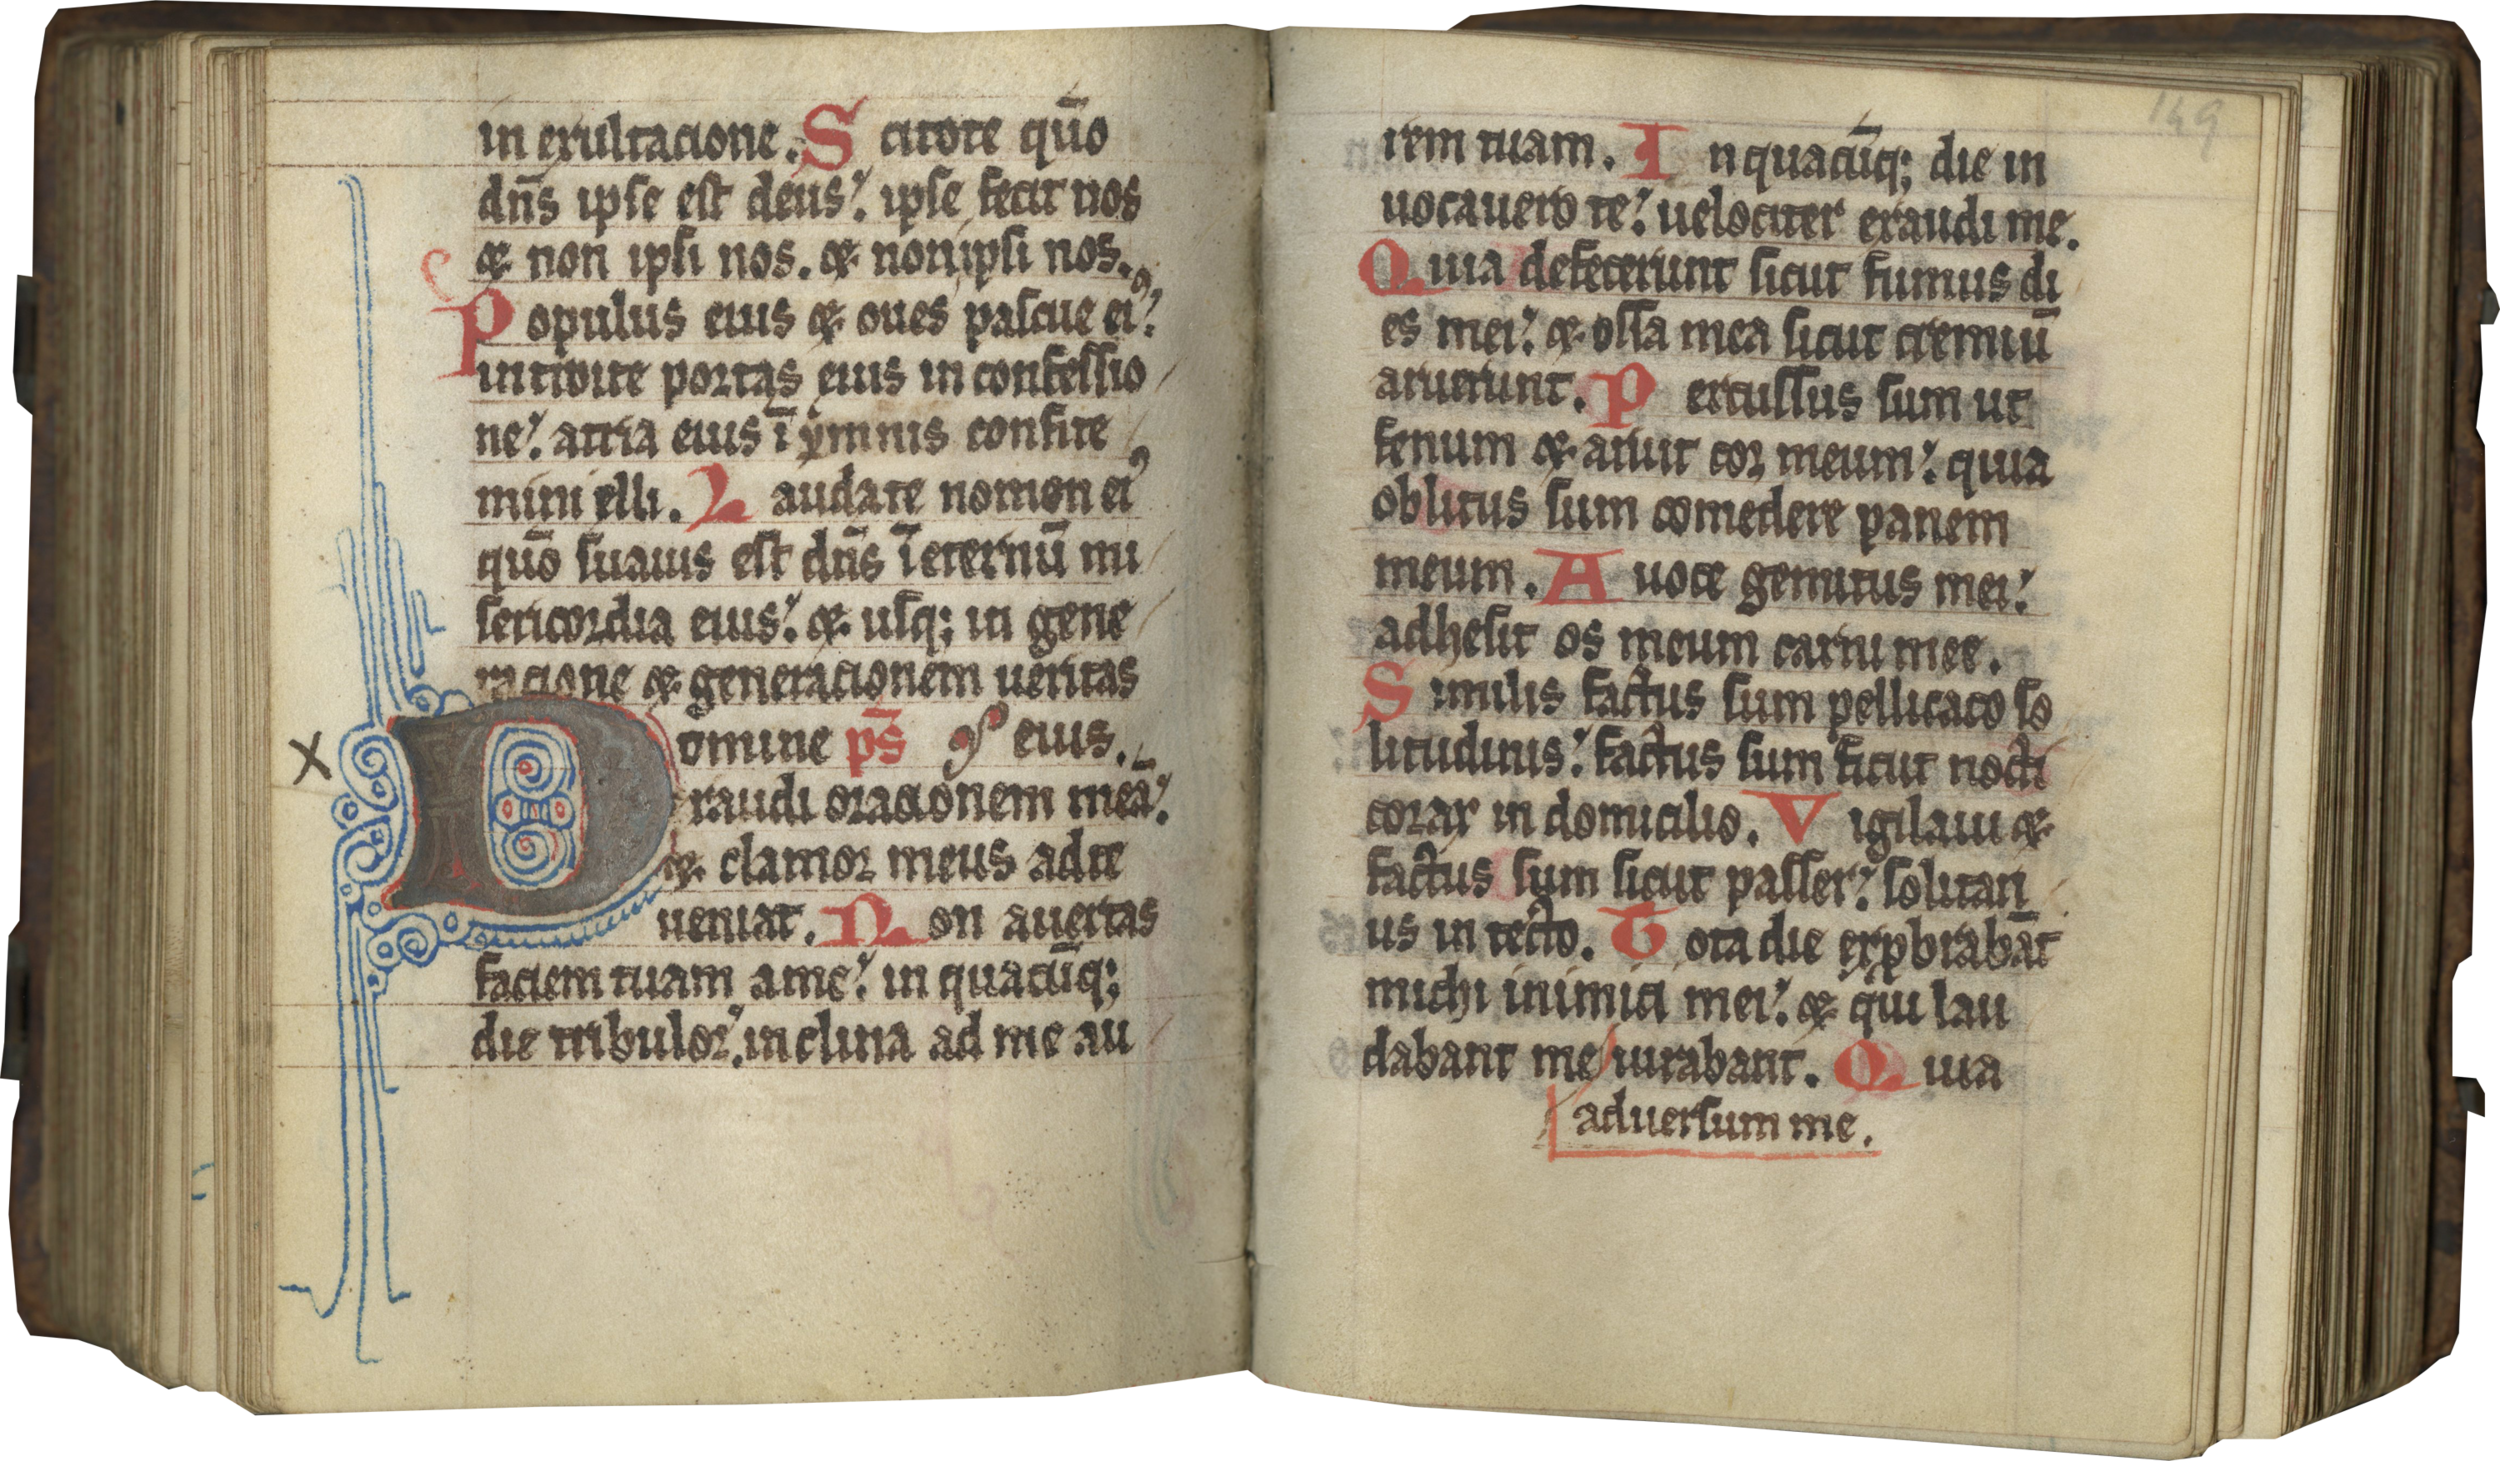 in exultacione. Scitote qūo
dn̄s ipse est deus: ipse fecit nos
⁊ non ipsi nos. ⁊ non ipsi nos.
Populus eius ⁊ oues pascue eiꝰ:
introite portas eius in confessio
ne: atria eius ī ymnis confite
mini illi. Laudate nomen eiꝰ
qūo suauis est dn̄s ī eternū mi
sericordia eius: ⁊ usq; in gene
racione ⁊ generacionem ueritas
Domine ps̄ eius.
exaudi oracionem meā:
⁊ clamor meus ad te
ueniat. Non auertas
faciem tuam a me: in quacūq;
die tribulor: inclina ad me au
rem tuam. In quacūq; die in
uocauero te: uelociter exaudi me.
Quia defecerunt sicut fumus di
es mei: ⁊ ossa mea sicut cremiū
aruerunt. Percussus sum ut
fenum ⁊ aruit cor meum: quia
oblitus sum comedere panem
meum. A uoce gemitus mei:
adhesit os meum carni mee.
Similis factus sum pellicano so
litudinis: factus sum sicut nocti
corax in domicilio. Vigilaui ⁊
factus sum sicut passer: solitari
us in tecto. Tota die exprobrabāt
michi inimici mei: ⁊ qui lau
dabant me iurabant. Quia
aduersum me.
149
X